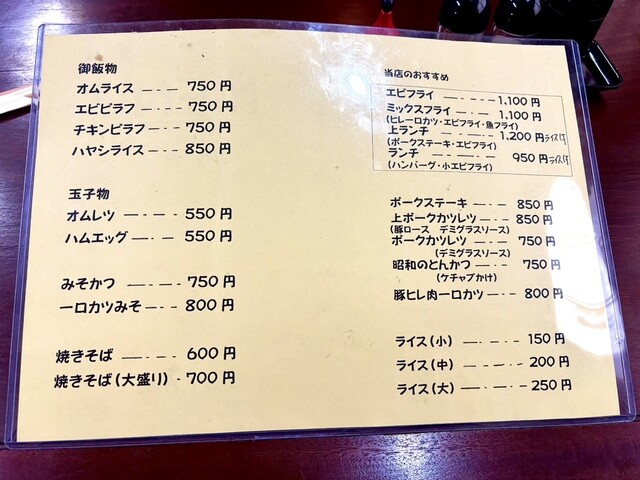 御飯物
オムライス ―・― 750円
エビピラフ ―・― 750円
チキンピラフ ―・― 750円
ハヤシライス ―・― 850円
玉子物
オムレツ ―・―・― 550円
ハムエッグ ―・― 550円
みそかつ ―・― 750円
一口カツみそ―・― 800円
焼きそば ―・―・― 600円
焼きそば(大盛り)・700円
当店のおすすめ
エビフライ ―・―・― 1,100円
ミックスフライ ―・― 1,100円
(ヒレ一口カツ・エビフライ・魚フライ)
上ランチ ―・―・― 1,200円ライス付
(ポークステーキ・エビフライ)
ランチ ―・―・― 950円ライス付
(ハンバーグ・小エビフライ)
ポークステーキ ―・― 850円
上ポークカツレツ―・― 850円
(豚ロース デミグラスソース)
ポークカツレツ ―・― 750円
(デミグラスソース)
昭和のとんかつ ―・― 750円
(ケチャプかけ)
豚ヒレ肉一口カツ ―・― 800円
ライス(小) ―・―・― 150円
ライス(中) ―・―・― 200円
ライス(大) ―・―・― 250円